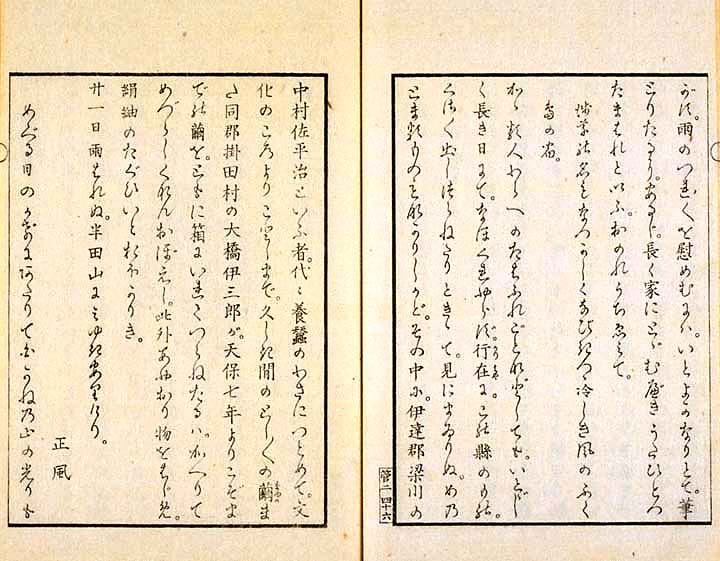 雨のつれ〳〵を慰めむには。いとよきのなりとて。筆
とりたるに。あるじ。長く家にとゞむべきうたひとつ
たまはれといふ。おのれうちゑみて。
名もなつかしくなびきつゝ冷しき風のふく
嶋の宿。
かゝる人わらへのたはふれごとなどしても。いとゞし
く長き日にて。なほくれはてず。行在に。この縣のもの。
くさ〴〵出しつらねたりときゝて。見にまゐりぬ。めの
とまるものもなかりしかど。その中に。伊達郡梁川の
管二 四十六
中村佐平治といふ者。代々養蠶のわざにつとめて。文
化のころよりことしまで。久しき間のとし〴〵の繭ま
た同郡掛田村の大橋伊三郎が。天保七年よりこぞま
での繭を。ともに箱にいれてつらねたるは。かへりて
めづらしくなんおぼえし。此外あやおり物をはじめ。
絹紬のたぐひいとおほかりき。
廿一日雨はれぬ。半田山にみゆきありけり。
正風
めぐる日のかげに たりてこがねの山の光りも